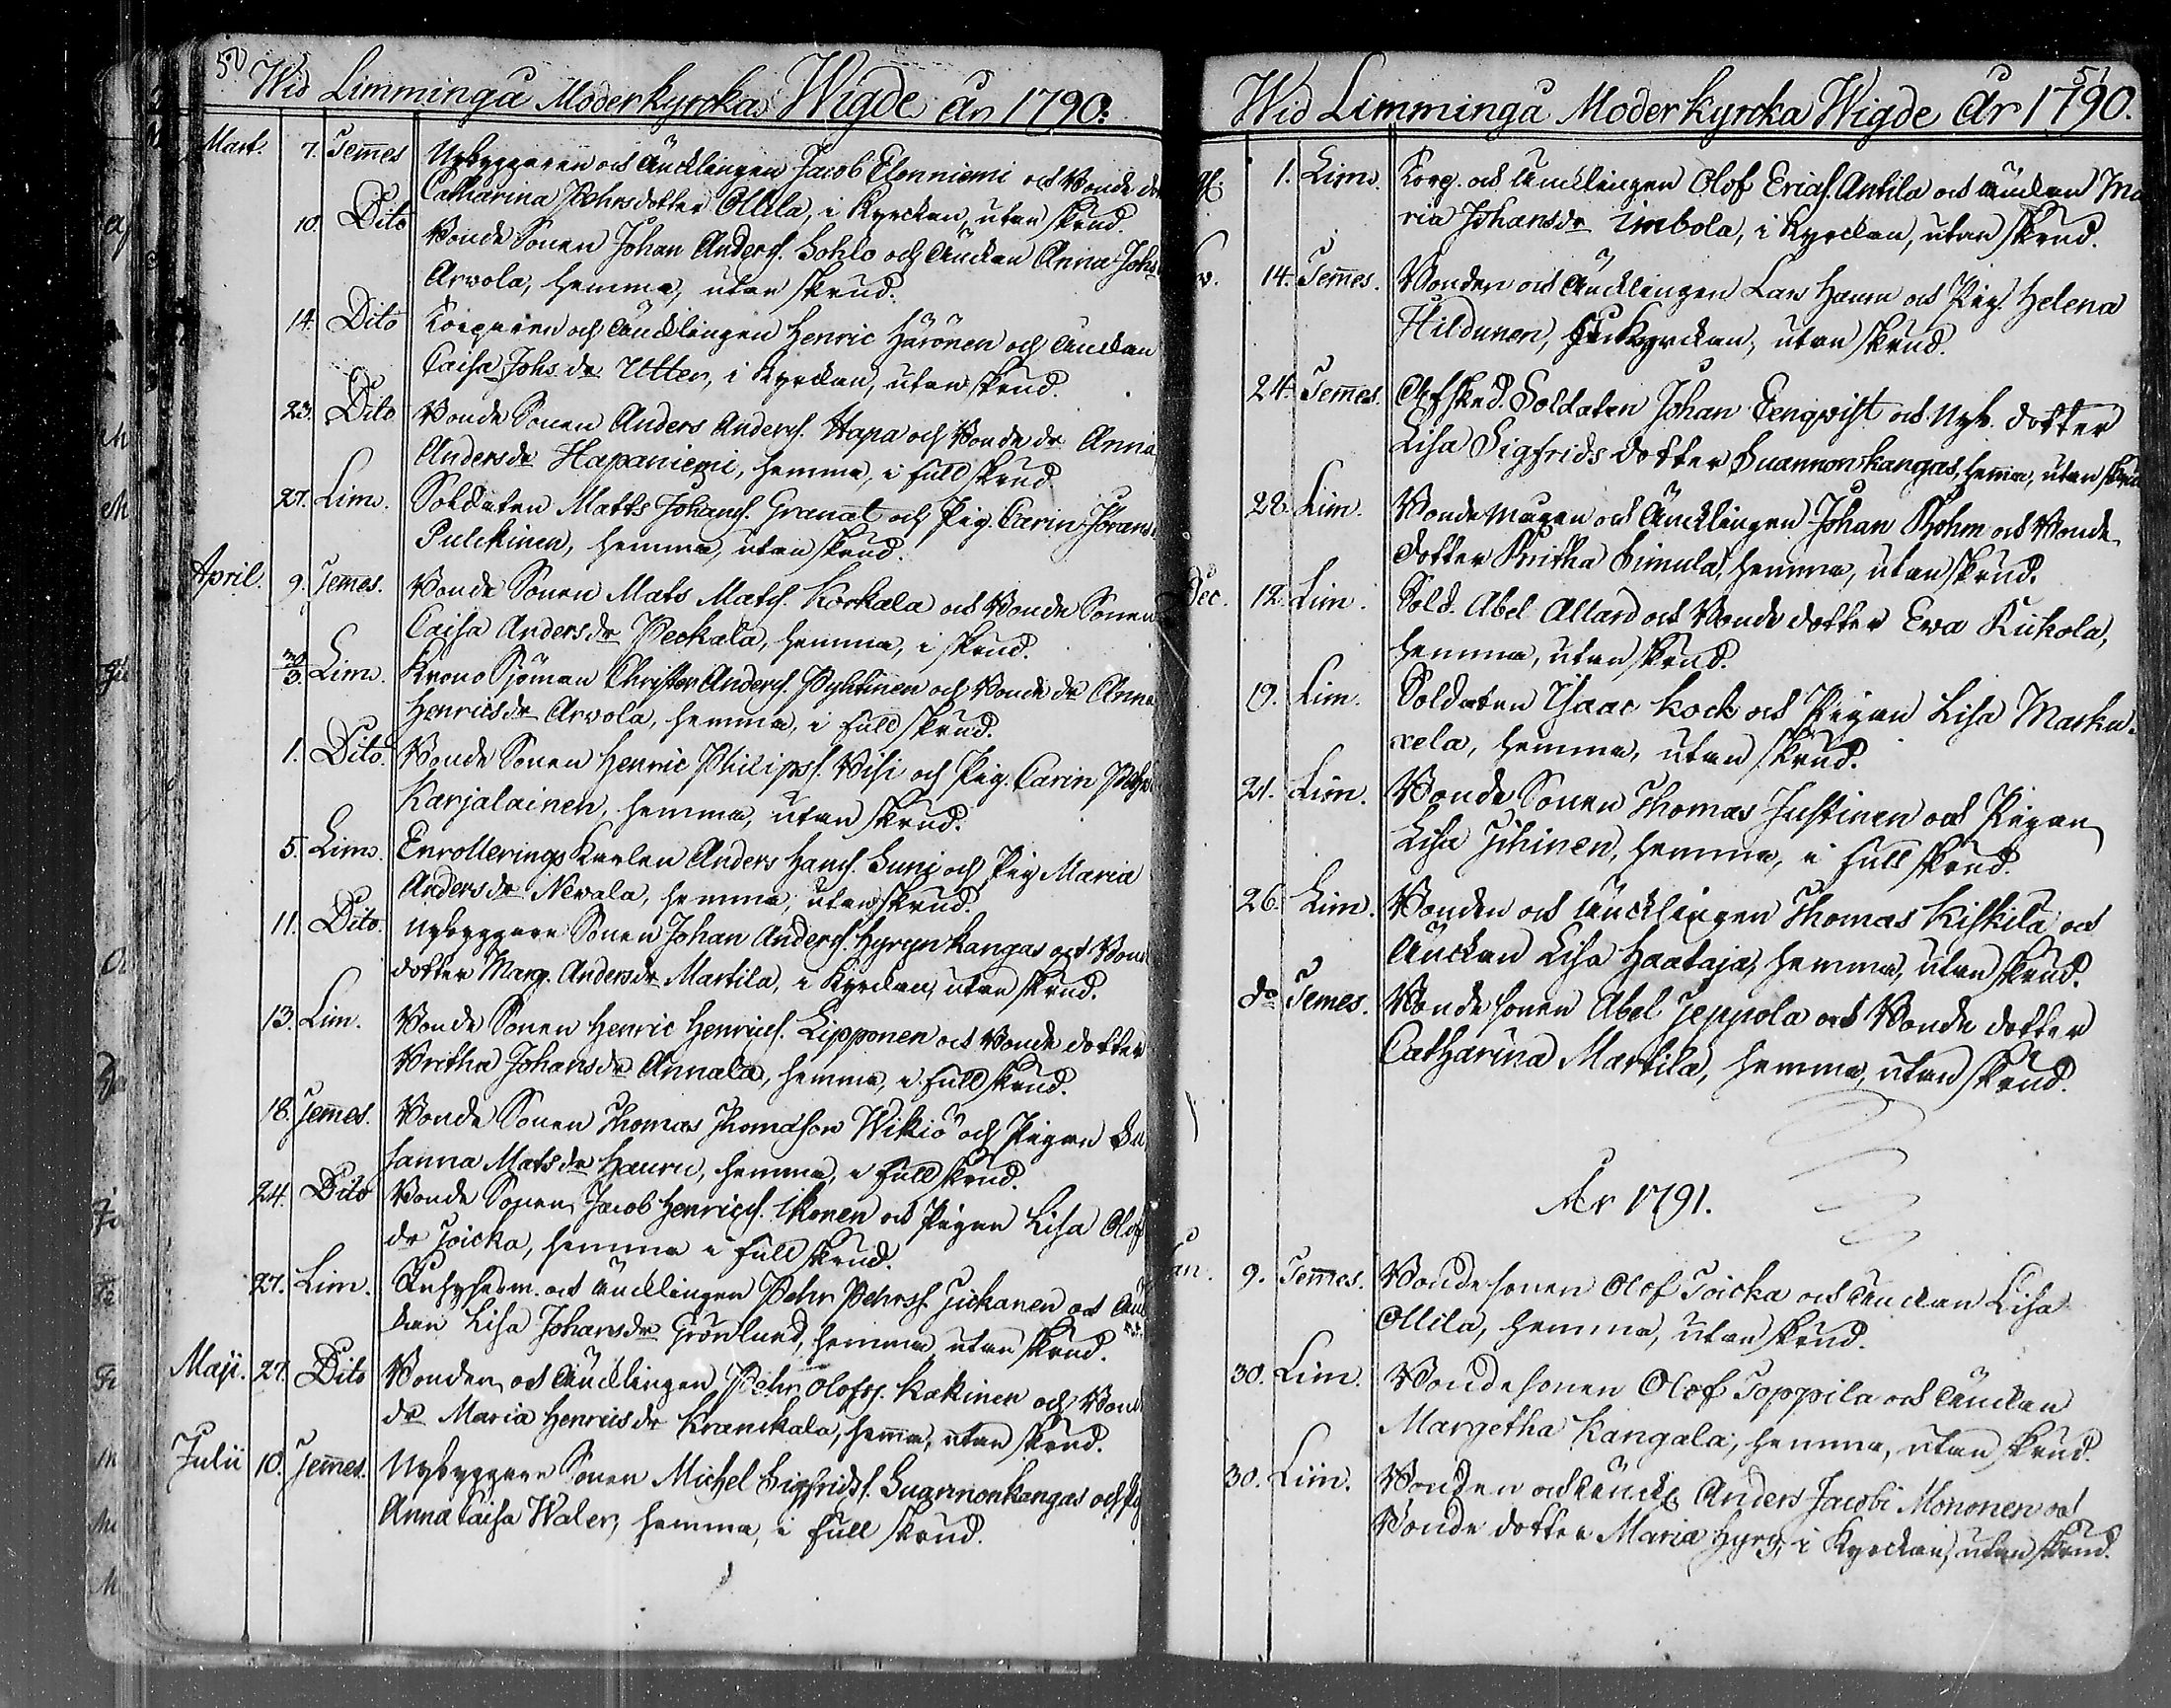 50
Wid Limminga Moderkyrka Wigde år 1790.
Mart. 7. Temmes Nybyggaren och Änklingen Jacob Elenniemi och Bonde dr
Catharina Pehrsdotter Ollila, i Kyrckan, utan skrud.
10. Dito Bonde Sonen Johan Anderss. Sohlo och Änckan Anna Johs
Arvola, hemma, utan skrud.
14. Dito Torparen och Äncklingen Henric Härönen och Änckan
Caisa Johs dr Utter, i Kyrckan, utan skrud.
23. Dito Bonde Sonen Anders Anderss. Hapa och Bonde dr Anna
Anders dr Hapaniemi, hemma, i full skrud
27. Lim. Soldaten Matts Johanss. Granat och Pig. Carin Jörans
Pulckinen, hemma, utan skrud.
April. 9. Temes. Bonde Sonen Mats Matss. Korkala och Bonde Sonen
Caisa Anders dr Peckala, hemma, i skrud.
30/3. Lim. Krono Sjöman Christer Anderss. Pyhtinen och Bonde dr Anna
Henrics dr Arvola, hemma, i full skrud.
1. Dito. Bonde Sonen Henric Philipss. Visi och Pig. Carin Pehrs
Karjalainen, hemma, utan skrud.
5. Lim. Enrollerings Karlen Anders Hanss. Suni och Pig Maria
Anders dr Nevala, hemma, utan skrud.
11. Dito. Nybyggare Sonen Johan Anderss. Hyrynkangas och Bonde
dotter Marg. Anders dr Martila, i Kyrckan, utan skrud.
13. Lim. Bonde Sonen Henric Henricss. Lipponen och Bonde dotter
Britha Johans dr Annala, hemma, i full skrud.
18. Temmes. Bonde Sonen Thomas Thomasson Wikiö och Pigan Su
sanna Mats dr Hauru, hemma, i full skrud.
24. Dito Bonde Sonen Jacob Henricss. Ikonen och Pigan Lisa Olofs
dr Joicka, hemma i full skrud.
27. Lim. och Äncklingen Pehr Pehrss. Juckanen och Än
ckan Lisa Johans dr Grönlund, hemma utan skrud.
Maji. 27. Dito Bonden och Äncklingen Pehr Olofss. Kakinen och Bonde
dr Maria Henrics dr Kranckala, hemma, utan skrud.
Julii 10. Temmes. Nybyggare Sonen Michel Sigfridss. Suannonkangas och Pig
Anna Caisa Waler, hemma, i full skrud.
51
Wid Limminga Moderkyrcka Wigde År 1790.
1. Lim. Torp. och Äncklingen Olof Erics. Antila och Änckan Ma
ria Johans dr Imbola, i Kyrckan, utan skrud.
14. Temmes. Bonden och Äncklingen Lars Hauru och Pig. Helena
Hildunen, i Kyrckan, utan skrud.
24. Temmes. Afsked. Soldaten Johan Eenqvist och Nyb. dotter
Lisa Sigfrids dotter Suannonkangas, hemma, utan skrud
28. Lim. Bonde Magen och Äncklingen Johan Bohm och Bonde
dotter Britha Simula, hemma, utan skrud.
Dec. 12. Lim. Sold. Abel Allard och Bonde dotter Ewa Kukola,
hemma, utan skrud.
19. Lim. Soldaten Isaac Kock och Pigan Lisa Marku-
xela, hemma, utan skrud.
21. Lim. Bonde Sonen Thomas Justinen och Pigan
Lisa Jihinen, hemma, i full skrud.
26. Lim. Bonden och Äncklingen Thomas Kiskilä och
Änckan Lisa Haataja, hemma, utan skrud.
do Temes. Bonde sonen Abel Jeppola och Bonde dotter
Catharina Martila, hemma, utan skrud.
År 1791.
an. 9. Temmes. Bonde sonen Olof Joicka och Änckan Lisa
Ollila, hemma, utan skrud.
30. Lim. Bonde sonen Olof Toppila och Änckan
Margetha Kangala, hemma, utan skrud.
30. Lim. Bonden och Änckl. Anders Jacobi Mononen och
Bonde dotter Maria Hyry, i Kyrckan, utan skrud.